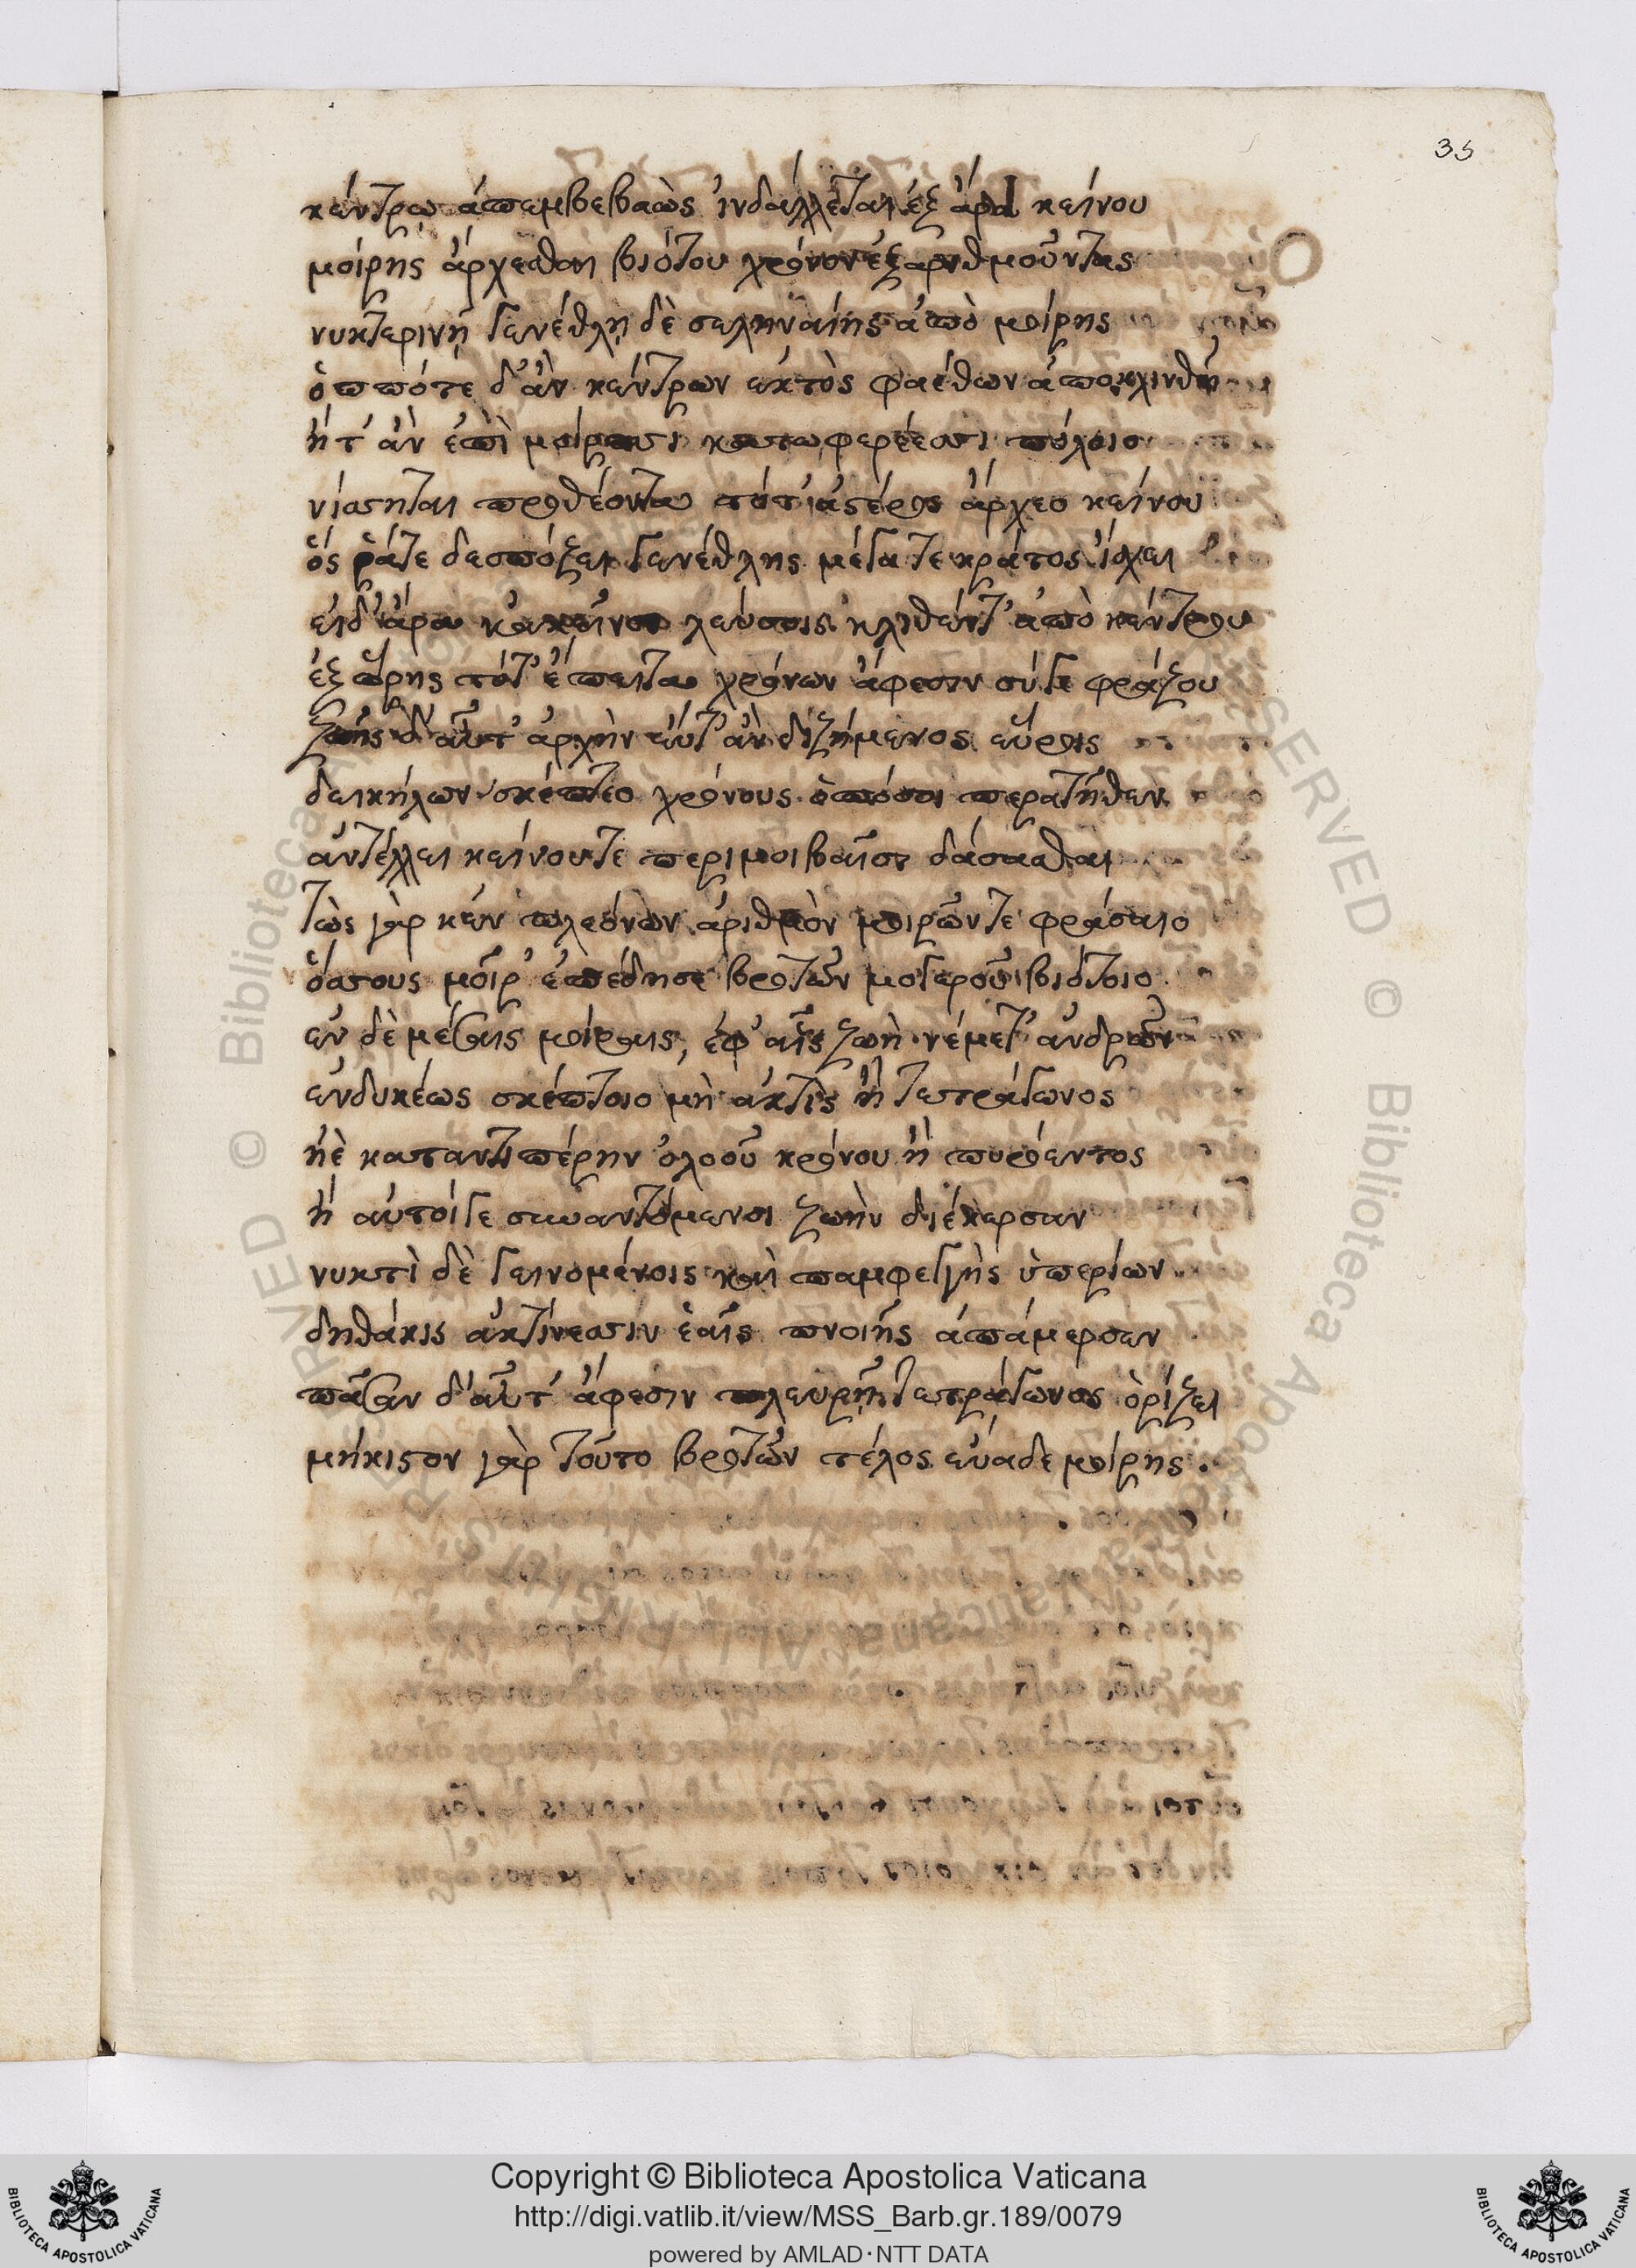 35
κέντρω ἀπεμβεβαὼς ἰνδάλλεται ἐξ ἄρα κείνου
μοίρης ἄρχεσθαι βιότου χρόνον ἐξαριθμοῦντας
νυκτερινῇ γενέθλῃ δὲ σεληναίης ἀπὸ μοίρης
ὁππότε δ' ἂν κέντρων ἐκτὸς φαέθων ἀποκλινθῇ
ἤτ' ἂν ἐπὶ μοίραισι κατωφερέεσσι πόλοιο
νίσσηται προθέοντα τότ' ἀστέρος ἄρχεο κείνου
ὅς ῥάτε δεσπόζει γενέθλης μέγα τε κράτος ἴσχει
εἰδ' ἄρα κἀκεῖνον λεύσοις κλιθέντ' ἀπὸ κέντρου
ἐξ ὥρης τότ' ἔπειτα χρόνων ἄφεσιν σύγε φράζου
ζωῆς δ' αὖτ' ἀρχὴν εὖτ' ἂν διζήμενος εὕροις
δεικήλων σκέπτεο χρόνους ὁπόσοι περάτηθεν
ἀντέλλει κείνουτε περιμοιβαῖσι δάσασθαι
τὼς γάρ κεν πλεόνων ἀριθμὸν μοιρῶντε φράσαιο
ὅσσους μοῖρ' ἐπέδησε βροτῶν μογεροῦ βιότοιο
ἐν δὲ μέσαις μοίραις, ἐφ' αἷς ζωὴ νέμετ' ἀνδρῶν
ἐνδυκέως σκέπτοιο μὴ ἀκτὶς ἢ τετράγωνος
ἠὲ καταντιπέρην ὀλοοῦ κρόνου ἢ πυρόεντος
ἢ αὐτοίγε συναντόμενοι ζωὴν διέκερσαν
νυκτὶ δὲ γεινομένοις καὶ παμφεγγὴς ὑπερίων
δηθάκις ἀκτίνεσσιν ἑαῖς πνοιῆς ἀπάμερσεν
πᾶσαν δ' αὖτ' ἄφεσιν πλευρῇ τετράγωνος ὁρίζει
μήκιστον γὰρ τοῦτο βροτῶν τέλος εὔαδε μοίρης.
Copyright © Biblioteca Apostolica Vaticana
http://digi.vatlib.it/view/MSS_Barb.gr.189/0079
powered by AMLAD·NTT DATA
BIBLIOTECA APOSTOLICA VATICANA
BIBLIOTECA APOSTOLICA VATICANA